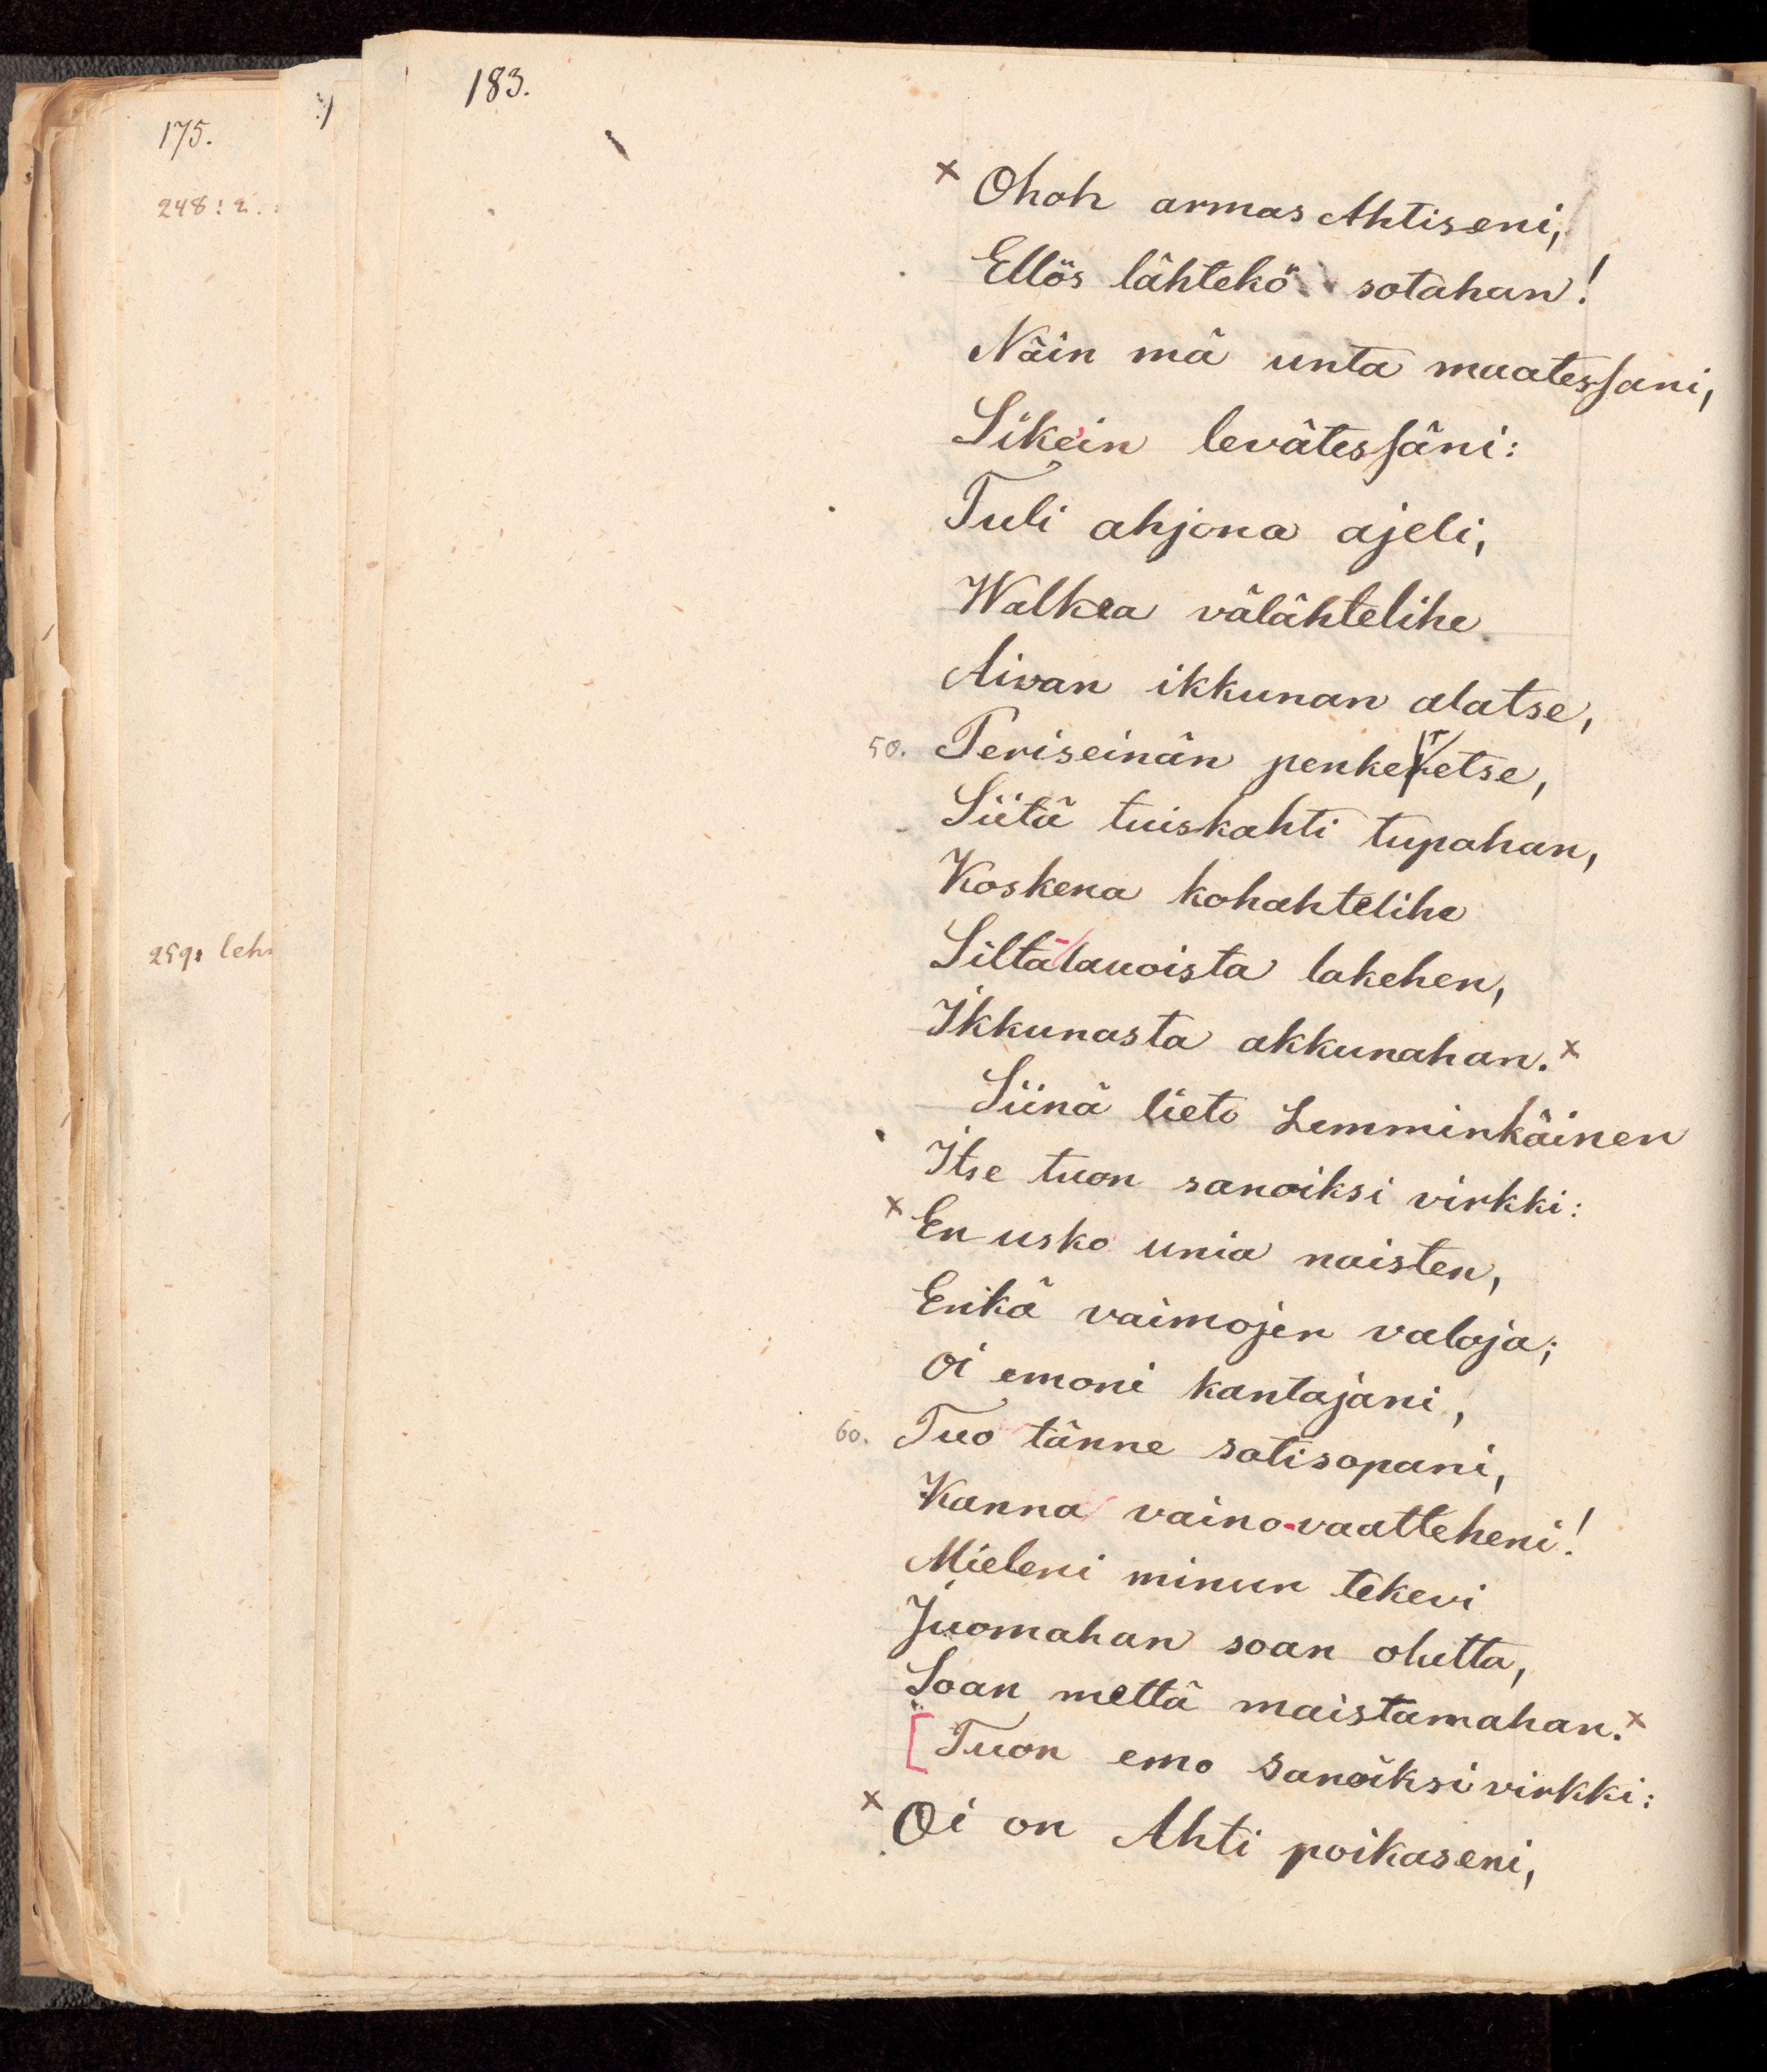 183.
175.
248: 2.
259: leh
× Ohoh armas Ahtiseni,
Ellös lähtekö sotahan!
Näin mä unta maatessani,
Sikein levätessäni:
Tuli ahjona ajeli,
Walkea välähtelihe
Aivan ikkunan alatse,
50. Periseinän penkeretse,
Siitä tuiskahti tupahan,
Koskena kohahtelihe
Siltalauoista lakehen,
Ikkunasta akkunahan. ×
Siinä lieto Lemminkäinen
Itse tuon sanoiksi virkki:
× En usko unia naisten,
Enkä vaimojen valoja;
Oi emoni kantajani,
60. Tuo tänne sotisopani,
Kanna vaino-vaatteheni!
Mieleni minun tekevi
Juomahan soan olutta,
Soan mettä maistamahan. ×
[Tuon emo sanoiksi virkki:
× Oi on Ahti poikaseni,